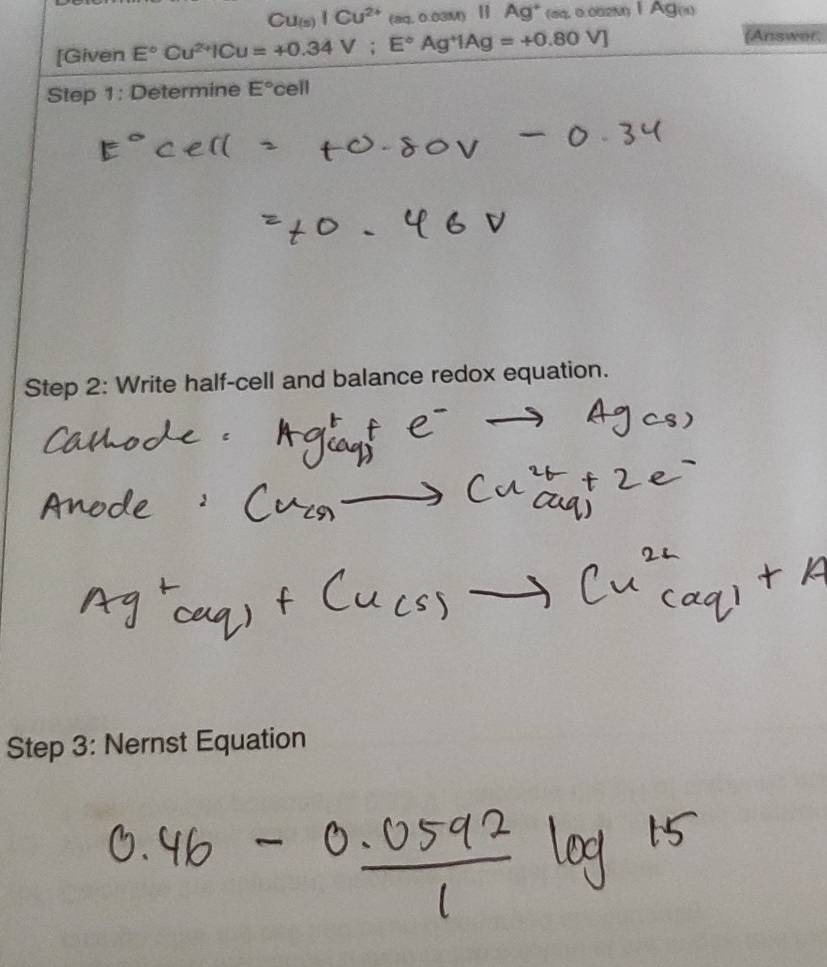 Cu(s) | Cu²⁺ (aq, 0.03M) || Ag⁺ (aq, 0.002M) | Ag(s)
[Given E° Cu²⁺|Cu = +0.34 V ; E° Ag⁺|Ag = +0.80 V] [Answer:
Step 1: Determine E°cell
E°cell = +0.80V - 0.34
= +0.46 V
Step 2: Write half-cell and balance redox equation.
Cathode : Ag⁺(aq) + e⁻ → Ag(s)
Anode : Cu(s) → Cu²⁺(aq) + 2e⁻
Ag⁺(aq) + Cu(s) → Cu²⁺(aq) + A
Step 3: Nernst Equation
0.46 - 0.0592/1 log 15